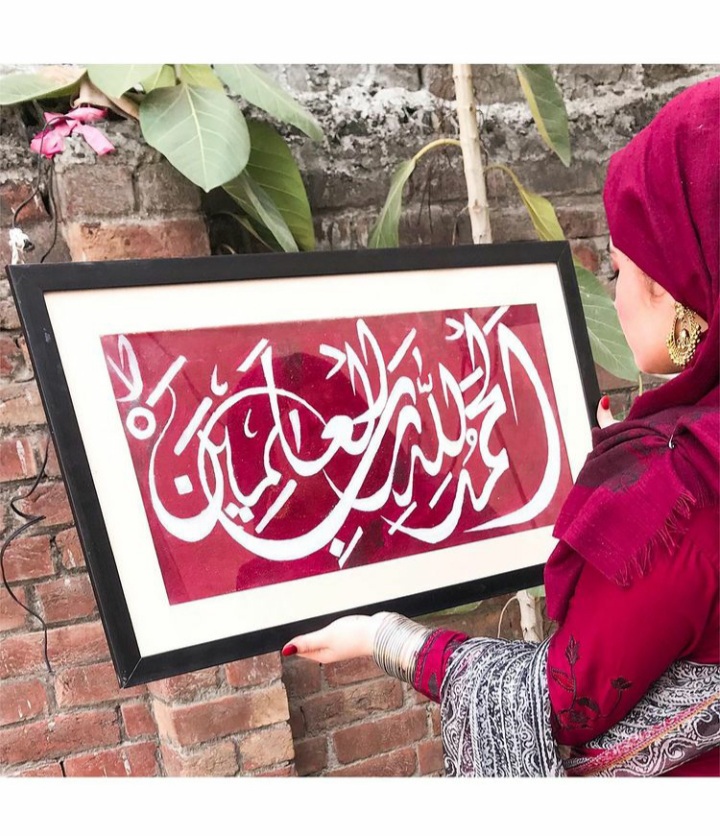 الحمد لله رب العالمين
لا